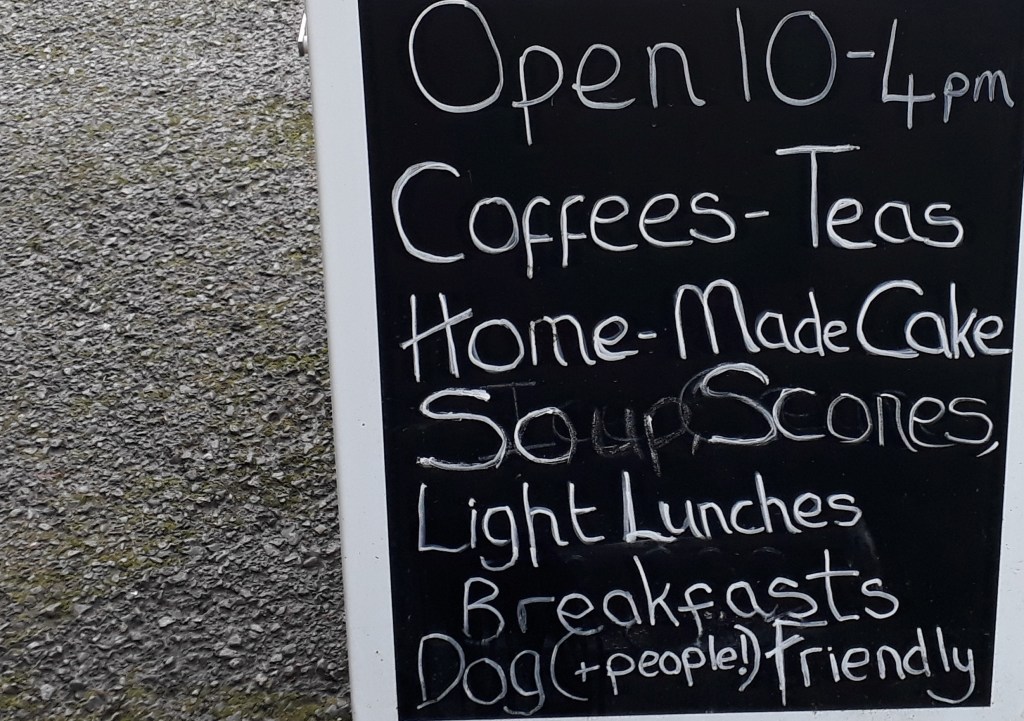 Open 10-4pm
Coffees-Teas
Home-Made Cake
Soup, Scones,
Light Lunches
Breakfasts
Dog (+people!) Friendly